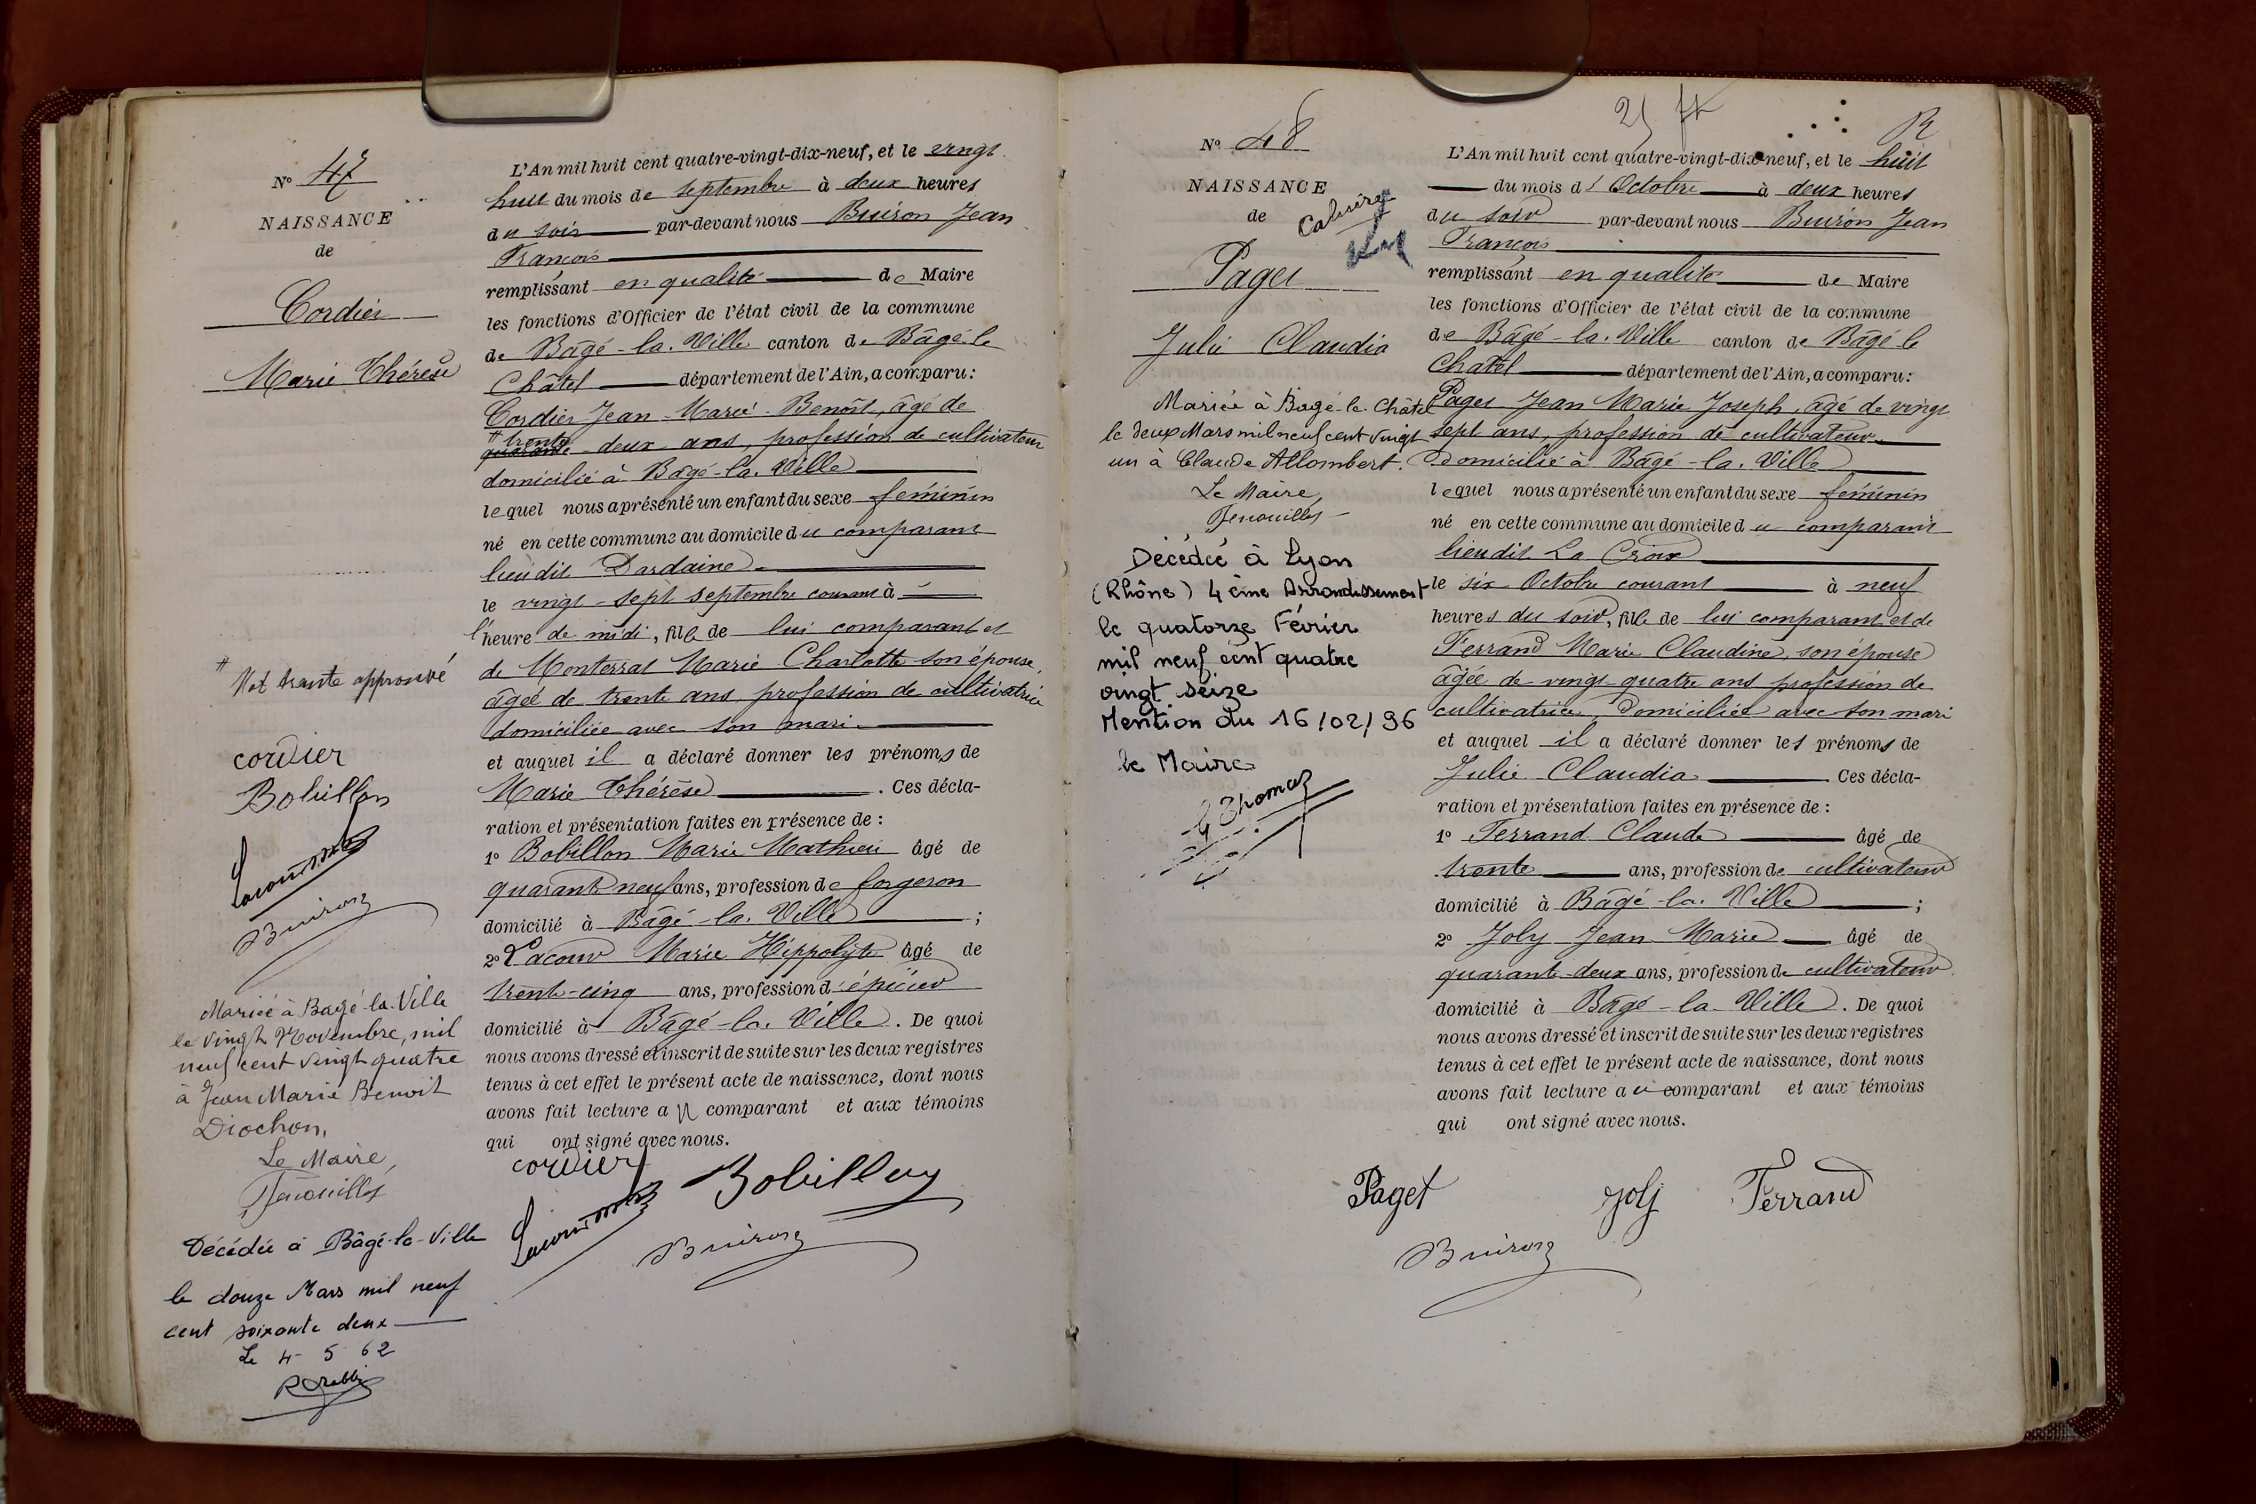 N° 47
NAISSANCE
de
Cordier
Marie Thérèse
# Mot trente approuvé
cordier
Bobillon
Lacour
Buiron
Mariée à Bagé-la-Ville
le vingt Novembre, mil
neuf cent vingt quatre
à Jean Marie Benoit
Diochon,
Le Maire,
Décédée à Bâgé-la-Ville
le douze Mars mil neuf
cent soixante deux
Le 4 5 62
L'An mil huit cent quatre-vingt-dix-neuf, et le vingt
huit du mois de septembre à deux heures
du soir par-devant nous Buiron Jean
François
remplissant en qualité de Maire
les fonctions d'Officier de l'état civil de la commune
de Bâgé-la-Ville canton de Bâgé-le
Châtel département de l'Ain, a comparu:
Cordier Jean-Marie-Benoît, âgé de
# trente
quarante-deux ans, profession de cultivateur
domicilié à Bâgé-la-Ville
lequel nous a présenté un enfant du sexe féminin
né en cette commune au domicile du comparant
lieu dit Dardaine
le vingt-sept septembre courant à
l'heure de midi, fille de lui comparant et
de Monterrat Marie Charlotte son épouse,
âgée de trente ans, profession de cultivatrice
domiciliée avec son mari
et auquel il a déclaré donner les prénoms de
Marie Thérèse . Ces décla-
ration et présentation faites en présence de :
1° Bobillon Marie Mathieu âgé de
quarante neuf ans, profession de forgeron
domicilié à Bâgé-la-Ville ;
2° Lacour Marie Hippolyte âgé de
trente-cinq ans, profession d'épicier
domicilié à Bâgé-la-Ville. De quoi
nous avons dressé et inscrit de suite sur les deux registres
tenus à cet effet le présent acte de naissance, dont nous
avons fait lecture au comparant et aux témoins
qui ont signé avec nous.
cordier
Bobillon
Lacour
Buiron
N° 48
NAISSANCE
de
Caluire
Paget
Julie Claudia
Mariée à Bagé-le-Châtel
le deux Mars mil neuf cent vingt
un à Claude Allombert.
Le Maire,
Décédée à Lyon
(Rhône) 4ème Arrondissement
le quatorze Février
mil neuf cent quatre
vingt seize
Mention du 16/02/96
le Maire
25
R
L'An mil huit cent quatre-vingt-dix-neuf, et le huit
du mois d'Octobre à deux heures
du soir par-devant nous Buiron Jean
François
remplissant en qualité de Maire
les fonctions d'Officier de l'état civil de la commune
de Bâgé-la-Ville canton de Bâgé le
Châtel département de l'Ain, a comparu:
Paget Jean Marie Joseph, âgé de vingt
sept ans, profession de cultivateur
domicilié à Bâgé-la-Ville
lequel nous a présenté un enfant du sexe féminin
né en cette commune au domicile du comparant
lieu dit La Croix
le six Octobre courant à neuf
heures du soir, fille de lui comparant et de
Ferrand Marie Claudine, son épouse
âgée de vingt quatre ans profession de
cultivatrice, domiciliée avec son mari
et auquel il a déclaré donner les prénoms de
Julie Claudia Ces décla-
ration et présentation faites en présence de :
1° Ferrand Claude âgé de
trente ans, profession de cultivateur
domicilié à Bâgé-la-Ville ;
2° Joly Jean Marie âgé de
quarante-deux ans, profession de cultivateur
domicilié à Bâgé-la-Ville. De quoi
nous avons dressé et inscrit de suite sur les deux registres
tenus à cet effet le présent acte de naissance, dont nous
avons fait lecture au comparant et aux témoins
qui ont signé avec nous.
Paget Joly Ferrand
Buiron